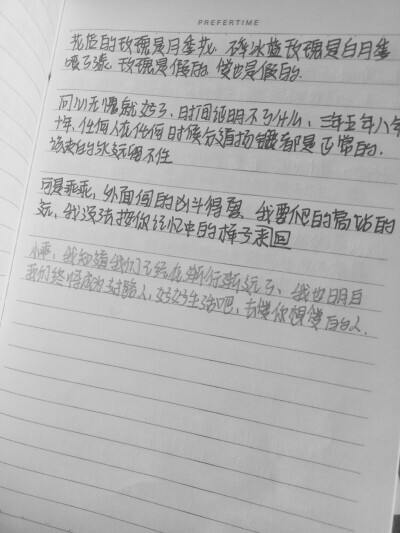 PREFERTIME
花店的玫瑰是月季花，碎冰蓝玫瑰是白月季
吸了墨．玫瑰是假的，爱也是假的．
问心无愧就好了，时间证明不了什么，三年五年八年
十年，任何人在任何时候分道扬镳都是正常的．
该走的永远留不住
可是乖乖，外面闯的凶斗得狠．我要爬的高站的
远，我没法按你记忆中的样子来回
小乖，我知道我们已经在渐行渐远了，我也明白
我们终将成为对路人，好好生活吧，去爱你想爱的人．